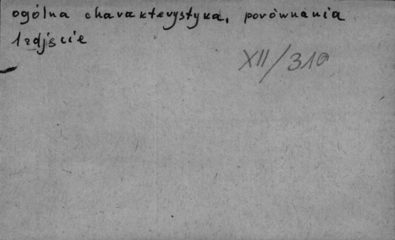 ogólna charakterystyka, porównania
1 zdjęcie
XII/310